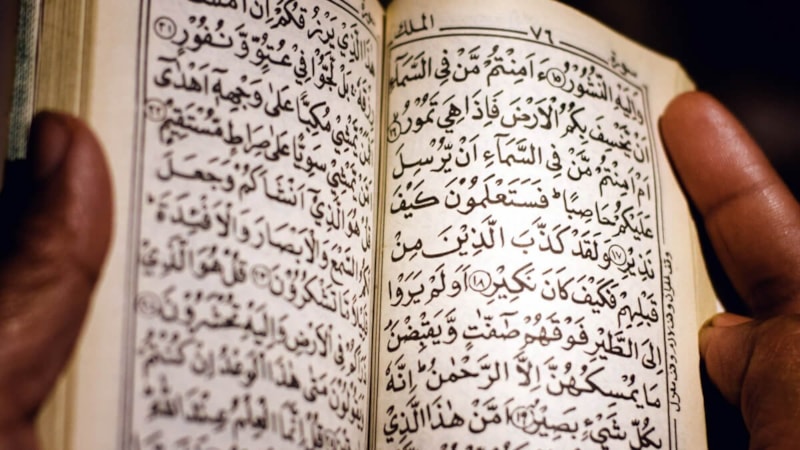 سورة ٧٦ الملك
وَاِلَيْهِ النُّشُوْرُ ۝١٥ ءَاَمِنْتُمْ مَّنْ فِي السَّمَآءِ
اَنْ يَّخْسِفَ بِكُمُ الْاَرْضَ فَاِذَا هِيَ تَمُوْرُ ۝١٦
اَمْ اَمِنْتُمْ مَّنْ فِي السَّمَآءِ اَنْ يُّرْسِلَ
عَلَيْكُمْ حَاصِبًا ؕ فَسَتَعْلَمُوْنَ كَيْفَ
نَذِيْرِ ۝١٧ وَلَقَدْ كَذَّبَ الَّذِيْنَ مِنْ
قَبْلِهِمْ فَكَيْفَ كَانَ نَكِيْرِ ۝١٨ اَوَلَمْ يَرَوْا
اِلَى الطَّيْرِ فَوْقَهُمْ صٰٓفّٰتٍ وَّيَقْبِضْنَ
مَا يُمْسِكُهُنَّ اِلَّا الرَّحْمٰنُ ؕ اِنَّهٗ
بِكُلِّ شَيْءٍ بَصِيْرٌ ۝١٩ اَمَّنْ هٰذَا الَّذِيْ
هٰذَا الَّذِيْ يَرْزُقُكُمْ اِنْ اَمْسَكَ
رِزْقَهٗ ۚ بَلْ لَّجُّوْا فِيْ عُتُوٍّ وَّنُفُوْرٍ ۝٢١
يَّمْشِيْ مُكِبًّا عَلٰى وَجْهِهٖٓ اَهْدٰٓى
يَّمْشِيْ سَوِيًّا عَلٰى صِرَاطٍ مُّسْتَقِيْمٍ ۝٢٢
قُلْ هُوَ الَّذِيْٓ اَنْشَاَكُمْ وَجَعَلَ
لَكُمُ السَّمْعَ وَالْاَبْصَارَ وَالْاَفْـِٕدَةَ ؕ
قَلِيْلًا مَّا تَشْكُرُوْنَ ۝٢٣ قُلْ هُوَ الَّذِيْ
ذَرَاَكُمْ فِي الْاَرْضِ وَاِلَيْهِ تُحْشَرُوْنَ ۝٢٤
وَيَقُوْلُوْنَ مَتٰى هٰذَا الْوَعْدُ اِنْ كُنْتُمْ
قُلْ اِنَّمَا الْعِلْمُ عِنْدَ اللّٰهِ